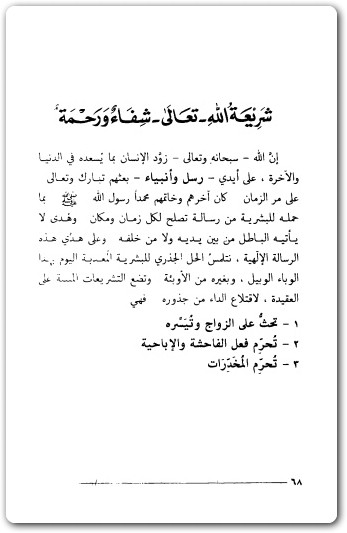 شَرِيْعَةُ اللهِ - تَعَالَىٰ - شِفَاءٌ وَرَحْمَةٌ
إنَّ الله - سبحانه وتعالى - زوَّد الإنسان بما يُسعده في الدنيا
والآخرة ، على أيدي - رسل وأنبياء - بعثهم تبارك وتعالى
على مر الزمان كان آخرهم وخاتمهم محمداً رسول الله ﷺ بما
حمله للبشرية من رسالة تصلح لكل زمان ومكان وهُدى لا
يأتيه الباطل من بين يديه ولا من خلفه وعلى هدْي هذه
الرسالة الإلَهية ، نتلمسُ الحل الجذري للبشرية المعذبة اليوم بهذا
الوباء الوبيل ، وبغيره من الأوبئة وتضع التشريعات المبنية على
العقيدة ، لاقتلاع الداء من جذوره فهي
١ - تحثُّ على الزواج وتُيَسَّره
٢ - تُحرِّم فعل الفاحشة والإباحية
٣ - تُحرِّم المُخَدِّرَات
٦٨